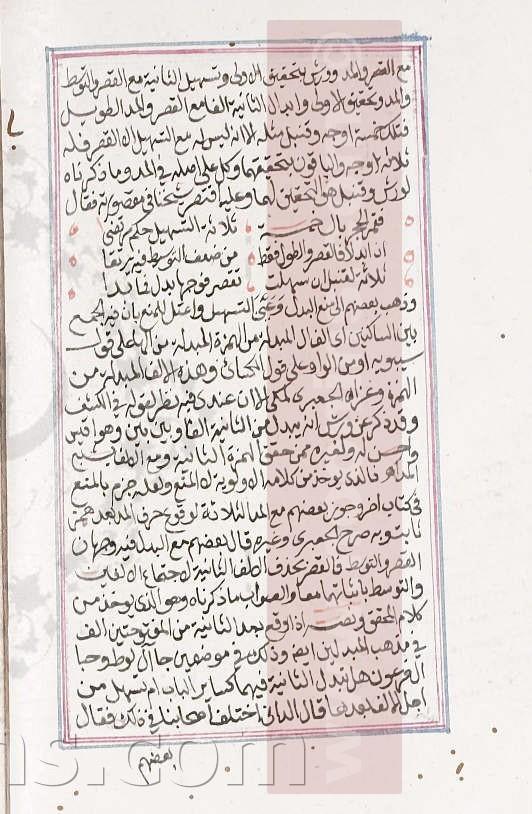 مع القصر والمد وورش بتحقيق الاولى وتسهيل الثانية مع القصر والتوسط
والمد وتحقيق الاولى وابدال الثانية الفا مع القصر والمد الطويل
فتلك خمسة اوجه وقنبل مثله الا انه ليس له مع التسهيل الا القصر فله
ثلاثة اوجه والباقون بتحقيقهما وكل على اصله في المد وما ذكرناه
لورش وقنبل هو التحقيق لهما وعليه اقتصر شيخنا في مقصورته فقال
ثلاثة التسهيل
ان ابدلا فالقصر والطول فقط من ضعف التوسط فيه
ثلاثة لقنبل ان سهلت تقصر
وذهب بعضهم الى منع البدل وعين التسهيل واعتل للمنع بان فيه الجمع
بين الساكنين اي الفال المبدلة من الهمزة المبدلة من الهاء على قول
سيبويه او من الواو على قول الكسائي وهذه الالف المبدلة من
الهمزة وعزاه الجعبري لمكي الا ان عندي فيه نظر لقوله في الكشف
وقد ذكر عن ورش انه يبدل من الثانية الفا وبين بين وهو اقيس
واحسن له ولغيره ممن حقق الهمزة الثانية ومع الفا يشبع
المد اه فالذي يوخذ من كلامه الاولوية لا المنع ولعله جزم بالمنع
في كتاب اخر وجوز بعضهم مع المد الثلاثة لوقوع حرف المد بعد همز
ثابت وبه صرح الجعبري وغيره قال بعضهم مع البدل فيه وجهان
القصر والتوسط فالقصر بحذف الالف الثانية لاجتماع الالفات
والتوسط باثباتهما معا والصواب ما ذكرناه وهو الذي يوخذ من
كلام المحقق ونصه اذا وقع بعد الثانية من المفتوحتين الف
في مذهب المبدلين ايضا وذلك في موضعين جا ال لوط وجا
ال فرعون هل تبدل الثانية فيهما كساير الباب ام تسهل من
اجل الالف بعدها قال الداني اختلف اصحابنا في ذلك فقال
بعضهم
ns.com